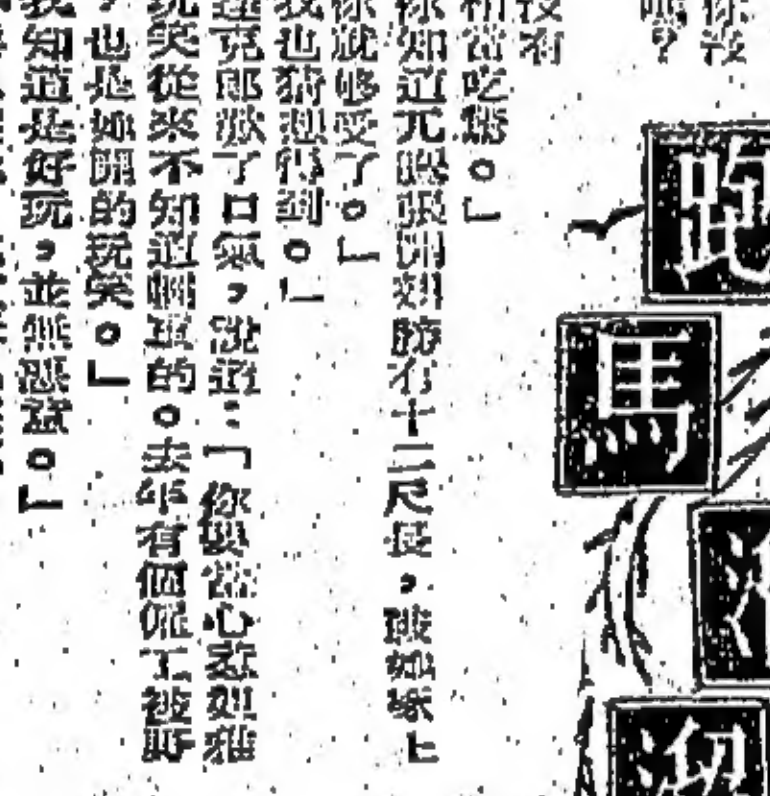 你沒
嗎?
跑
馬
溜
沒有
相當吃驚。」
你知道兀鷹張開翅膀有十二尺長,被她啄上
你就够受了。」
我也猜想得到。」
達克郎歎了口氣,說道:「你要當心忽如雅
玩笑從來不知道輕重的。去年有個僱工被野
,也是她開的玩笑。」
我知道是好玩,並無惡意。」